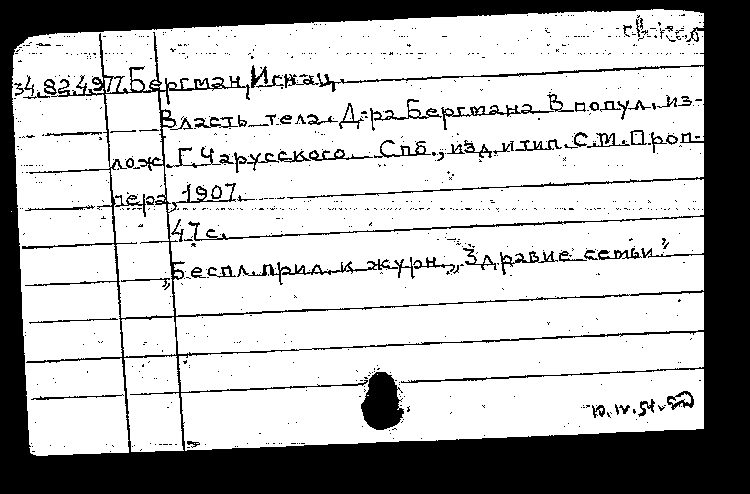 34.82.4.977. Бергман, Игнац.
Власть тела. Д-ра Бергмана в попул. из-
лож. Г. Чарусского. Спб., изд. и тип. С.М. Проп-
пера, 1907.
47 с.
„Беспл. прил. к журн. „Здравие семьи“
10.IV.54.